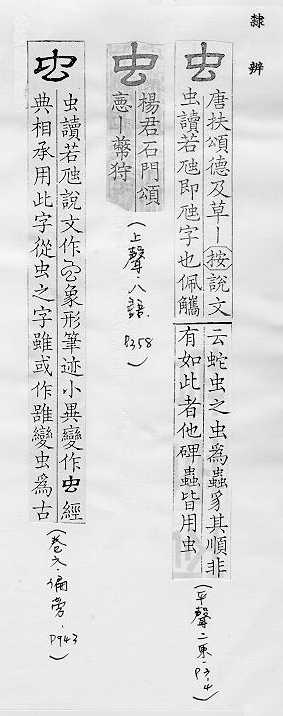 隸辨
虫
唐扶頌德及草丨按說文
虫讀若虺即虺字也佩觿
云蛇虫之虫為蟲豸其順非
有如此者他碑蟲皆用虫
(平聲二東,P3,4)
虫
楊君石門頌
丨狩
(上聲八語 P358)
虫
虫讀若虺說文作象形筆迹小異變作虫經
典相承用此字從虫之字雖或作變虫為古
(卷六·偏旁·P943)